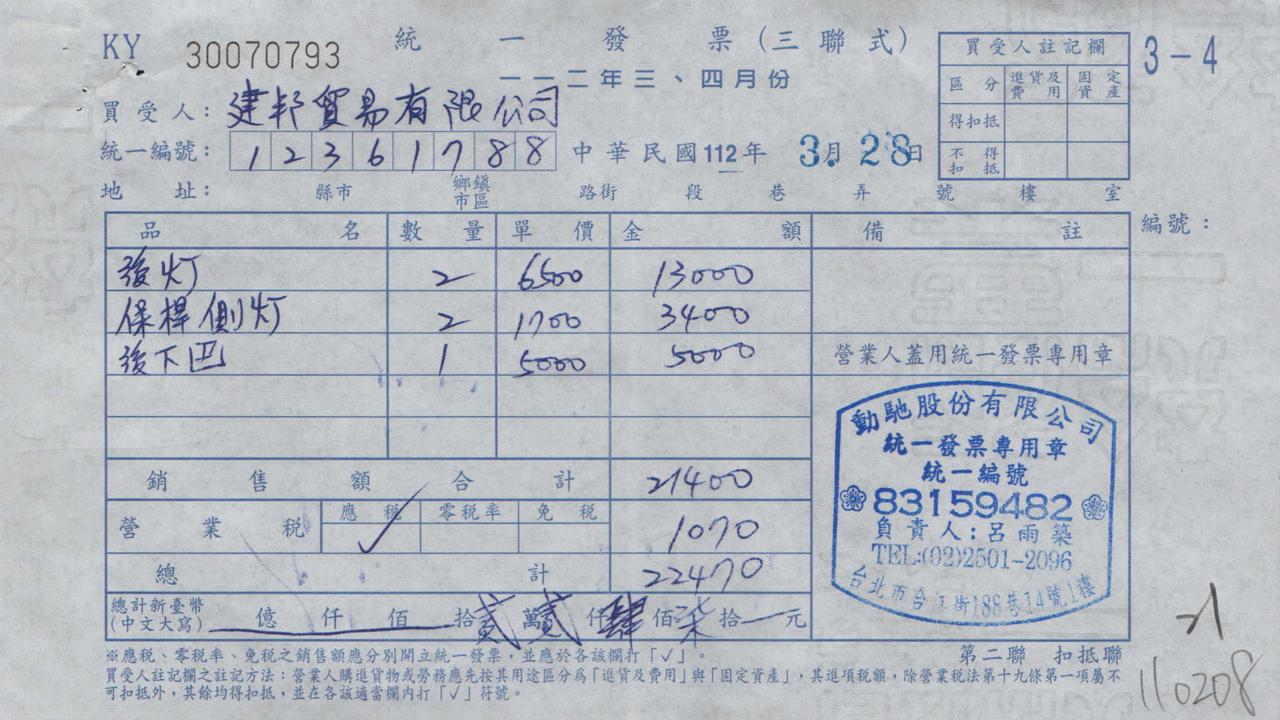 KY 30070793 統一發票(三聯式)
一一二年三、四月份
3-4
買受人註記欄
區分 進貨及費用 固定資產
得扣抵
不得扣抵
買受人:建邦貿易有限公司
統一編號:12361788 中華民國112年3.月28日
地址: 縣市 鄉鎮市區 路街 段 巷 弄 號 樓 室
品名 數量 單價 金額 備註 編號:
後灯 2 6500 13000
保桿側灯 2 1700 3400
後下巴 1 5000 5000
營業人蓋用統一發票專用章
銷售額合計 21400
營業稅 應稅 ✓ 零稅率 免稅 1070
總計 22470
總計新臺幣(中文大寫) 億 仟 佰 拾貳萬貳仟肆佰柒拾 元
動馳股份有限公司
統一發票專用章
統一編號
83159482
負責人:呂雨築
TEL:(02)2501-2096
台北市合江街188巷14號1樓
※應稅、零稅率、免稅之銷售額應分別開立統一發票,並應於各該欄打「✓」。
第二聯 扣抵聯
買受人註記欄之註記方法:營業人購進貨物或勞務應先按其用途區分為「進貨及費用」與「固定資產」,其進項稅額,除營業稅法第十九條第一項屬不
可扣抵外,其餘均得扣抵,並在各該適當欄內打「✓」符號。
110208